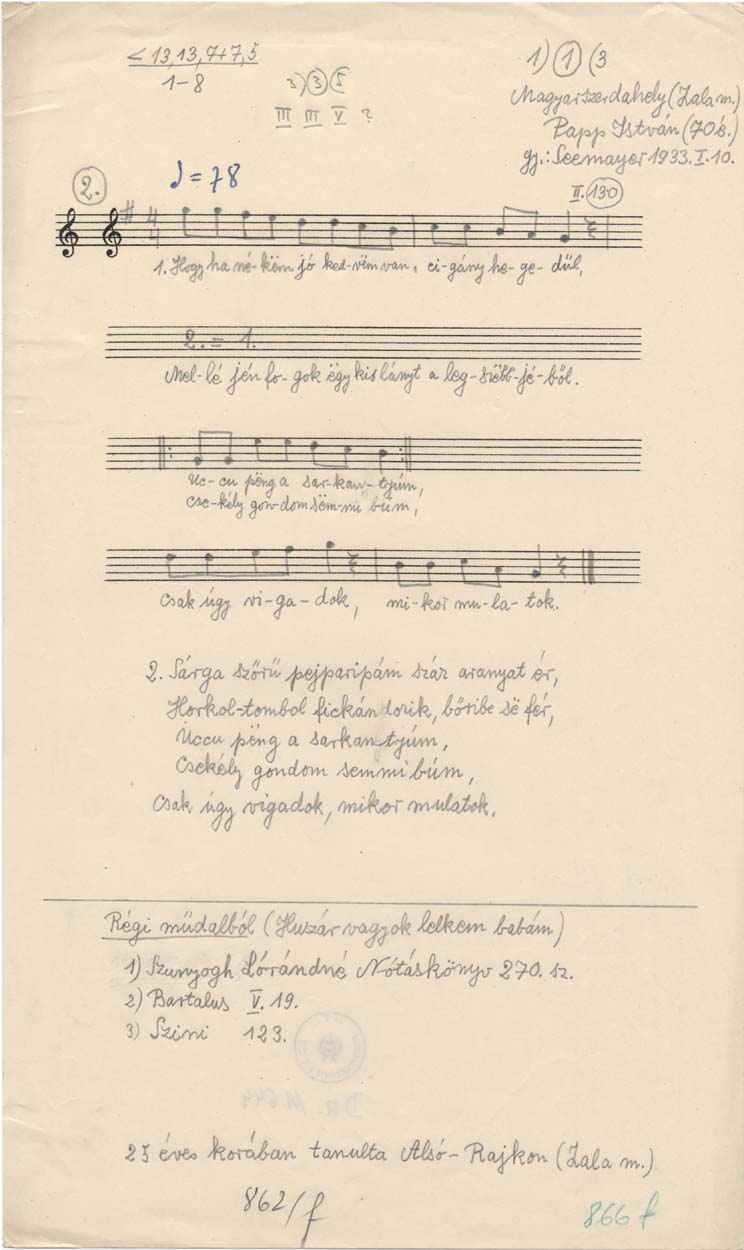 < 13, 13, 7+7, 5
1-8
3) 3 5
III III V ?
1) 1 (3
Magyarszerdahely (Zala m.)
Papp István (70 é.)
gy.: Seemayer 1933. I. 10.
2.
♩ = 78
II. 130
4
4
1. Hogyha né-këm jó ked-vëm van, ci-gány he-ge-dül,
2. = 1.
Mel-lé jén fo-gok ëgy kis lányt a leg-szëbb-jé-ből.
Uc-cu pëng a sar-kan-tyúm,
Cse-kély gon-dom sëm-mi búm,
Csak úgy vi-ga-dok, mi-kor mu-la-tok.
2. Sárga szőrű pejparipám száz aranyat ér,
Horkol-tombol fickándozik, bőribe së fér,
Uccu pëng a sarkantyúm,
Csekély gondom semmi búm,
Csak úgy vigadok, mikor mulatok.
Régi műdalból (Huszár vagyok lelkem babám)
1) Szunyogh Lórándné Nótáskönyv 270. sz.
2) Bartalus V. 19.
3) Szini 123.
25 éves korában tanulta Alsó-Rajkon (Zala m.)
862/f
866 f